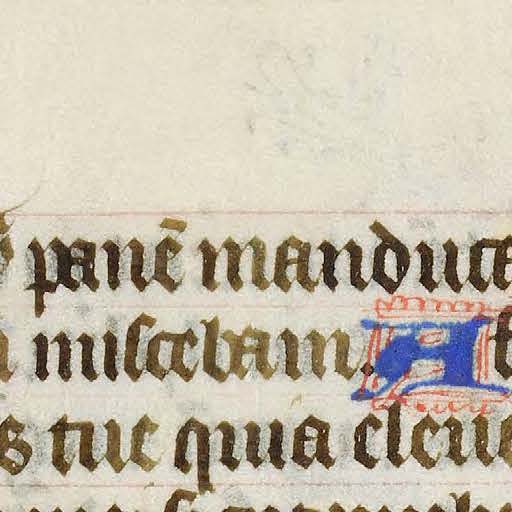 panē manduca
miscebam. A
s tue quia eleua